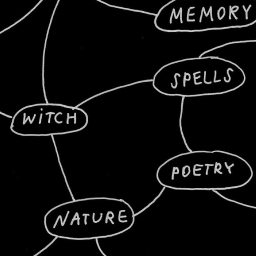 MEMORY
SPELLS
WiTCH
POETRY
NATURE